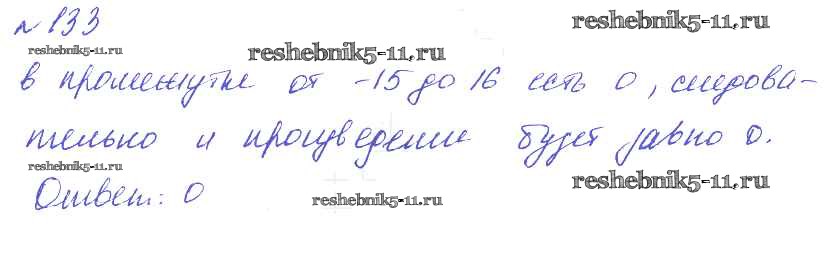 № 133
reshebnik5-11.ru
reshebnik5-11.ru
reshebnik5-11.ru
в промежутке от -15 до 16 есть 0, следова-
тельно и произведение будет равно 0.
reshebnik5-11.ru
Ответ: 0
reshebnik5-11.ru
reshebnik5-11.ru